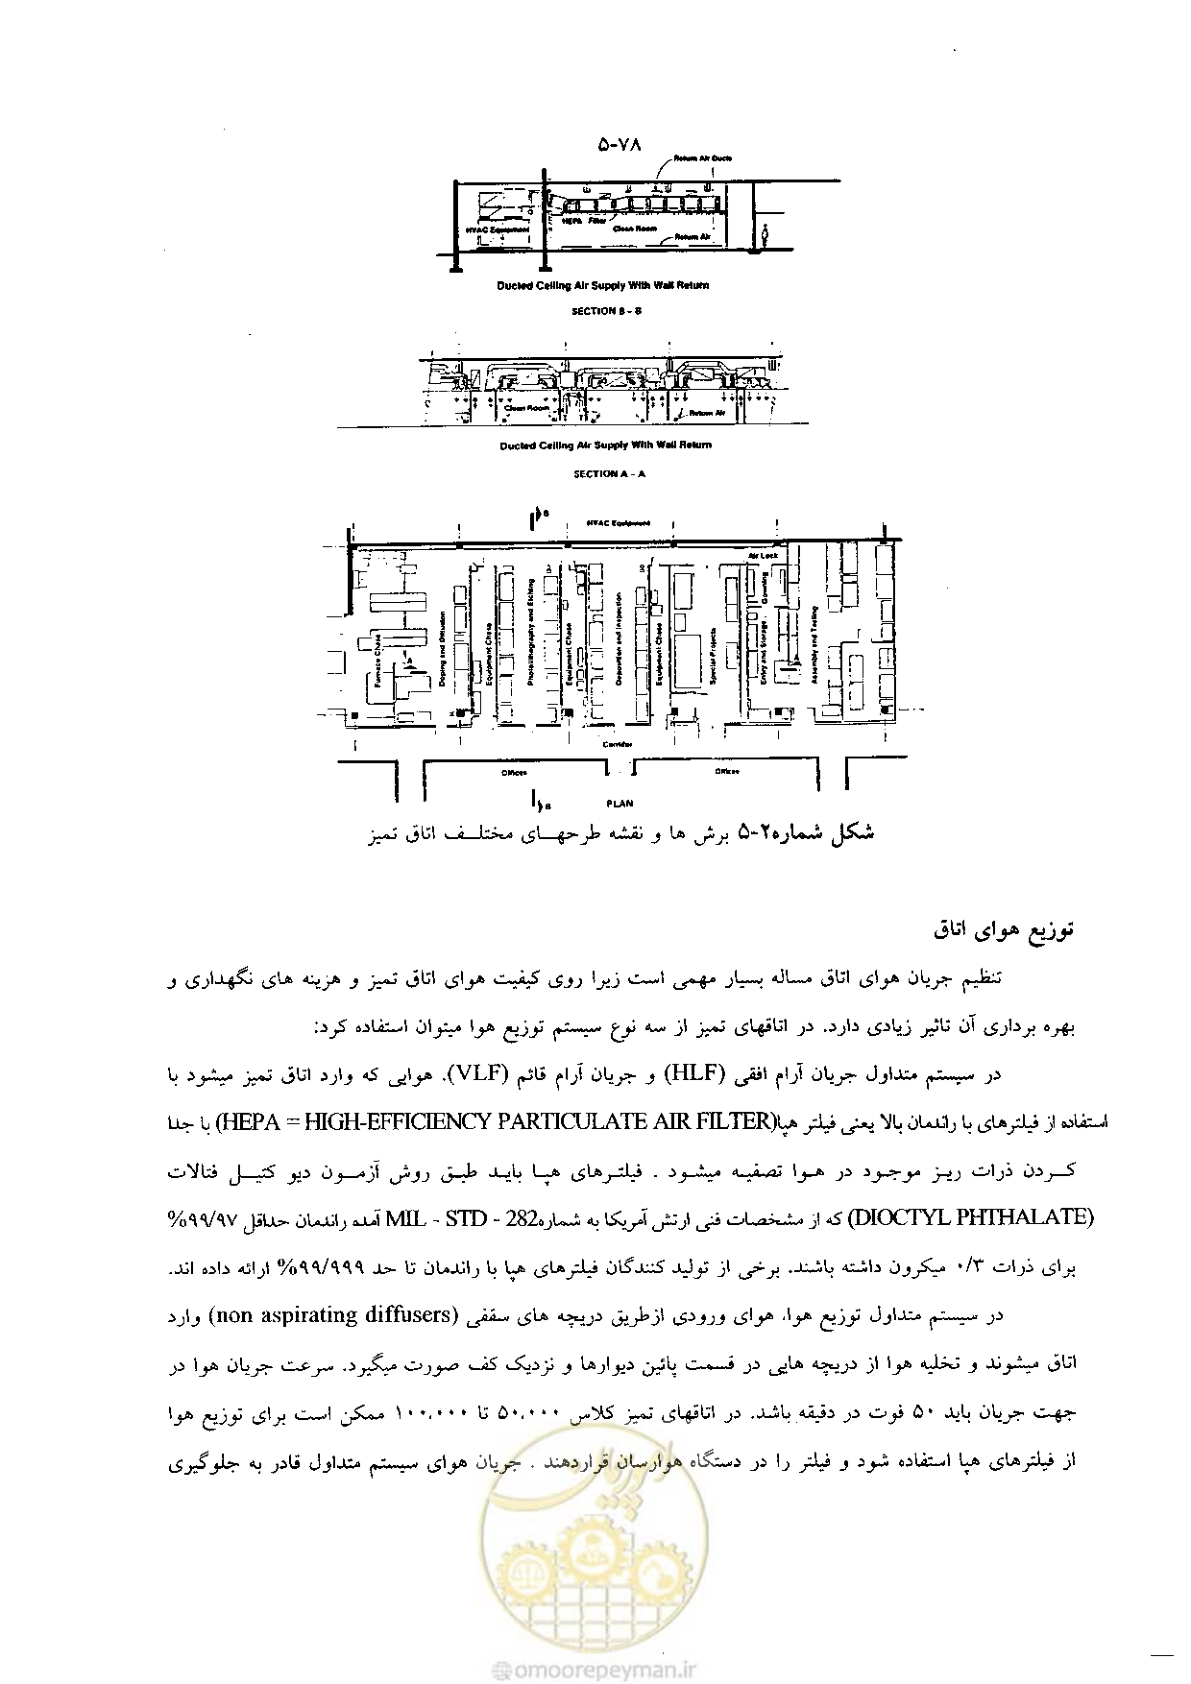 ۵-۷۸
Return Air Ducts
HEPA Filter
Clean Room
HVAC Equipment
Return Air
Ducted Ceiling Air Supply With Wall Return
SECTION B - B
Clean Room
Return Air
Ducted Ceiling Air Supply With Wall Return
SECTION A - A
B
HVAC Equipment
Air Lock
Furnace Chase
Doping and Diffusion
Equipment Chase
Photolithography and Etching
Equipment Chase
Deposition and Inspection
Equipment Chase
Special Projects
Entry and Storage
Gowning
Assembly and Testing
A
A
Corridor
Offices
Offices
B
PLAN
شکل شماره۲-۵ برش ها و نقشه طرحهــای مختلــف اتاق تمیز
توزیع هوای اتاق
تنظیم جریان هوای اتاق مساله بسیار مهمی است زیرا روی کیفیت هوای اتاق تمیز و هزینه های نگهداری و
بهره برداری آن تاثیر زیادی دارد. در اتاقهای تمیز از سه نوع سیستم توزیع هوا میتوان استفاده کرد:
در سیستم متداول جریان آرام افقی (HLF) و جریان آرام قائم (VLF). هوایی که وارد اتاق تمیز میشود با
استفاده از فیلترهای با راندمان بالا یعنی فیلتر هپا(HEPA = HIGH-EFFICIENCY PARTICULATE AIR FILTER) با جدا
کــردن ذرات ریـز موجـود در هـوا تصفیـه میشـود . فیلتـرهای هپـا بایـد طبـق روش آزمـون دیو کتیـل فتالات
(DIOCTYL PHTHALATE) که از مشخصات فنی ارتش آمریکا به شماره282 - MIL - STD آمده راندمان حداقل ۹۹/۹۷%
برای ذرات ۰/۳ میکرون داشته باشند. برخی از تولید کنندگان فیلترهای هپا با راندمان تا حد ۹۹/۹۹۹% ارائه داده اند.
در سیستم متداول توزیع هوا، هوای ورودی ازطریق دریچه های سقفی (non aspirating diffusers) وارد
اتاق میشوند و تخلیه هوا از دریچه هایی در قسمت پائین دیوارها و نزدیک کف صورت میگیرد. سرعت جریان هوا در
جهت جریان باید ۵۰ فوت در دقیقه باشد. در اتاقهای تمیز کلاس ۵۰،۰۰۰ تا ۱۰۰،۰۰۰ ممکن است برای توزیع هوا
از فیلترهای هپا استفاده شود و فیلتر را در دستگاه هوارسان قراردهند . جریان هوای سیستم متداول قادر به جلوگیری
امور پیمان
@omoorepeyman.ir